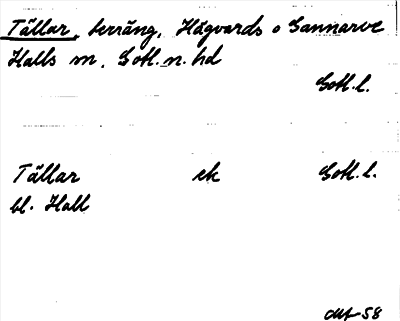 Tällar, terräng, Hägvards o Sannarve
Halls sn, Gotl. n. hd
Gotl. l.
Tällar ek Gotl. l.
bl. Hall
58